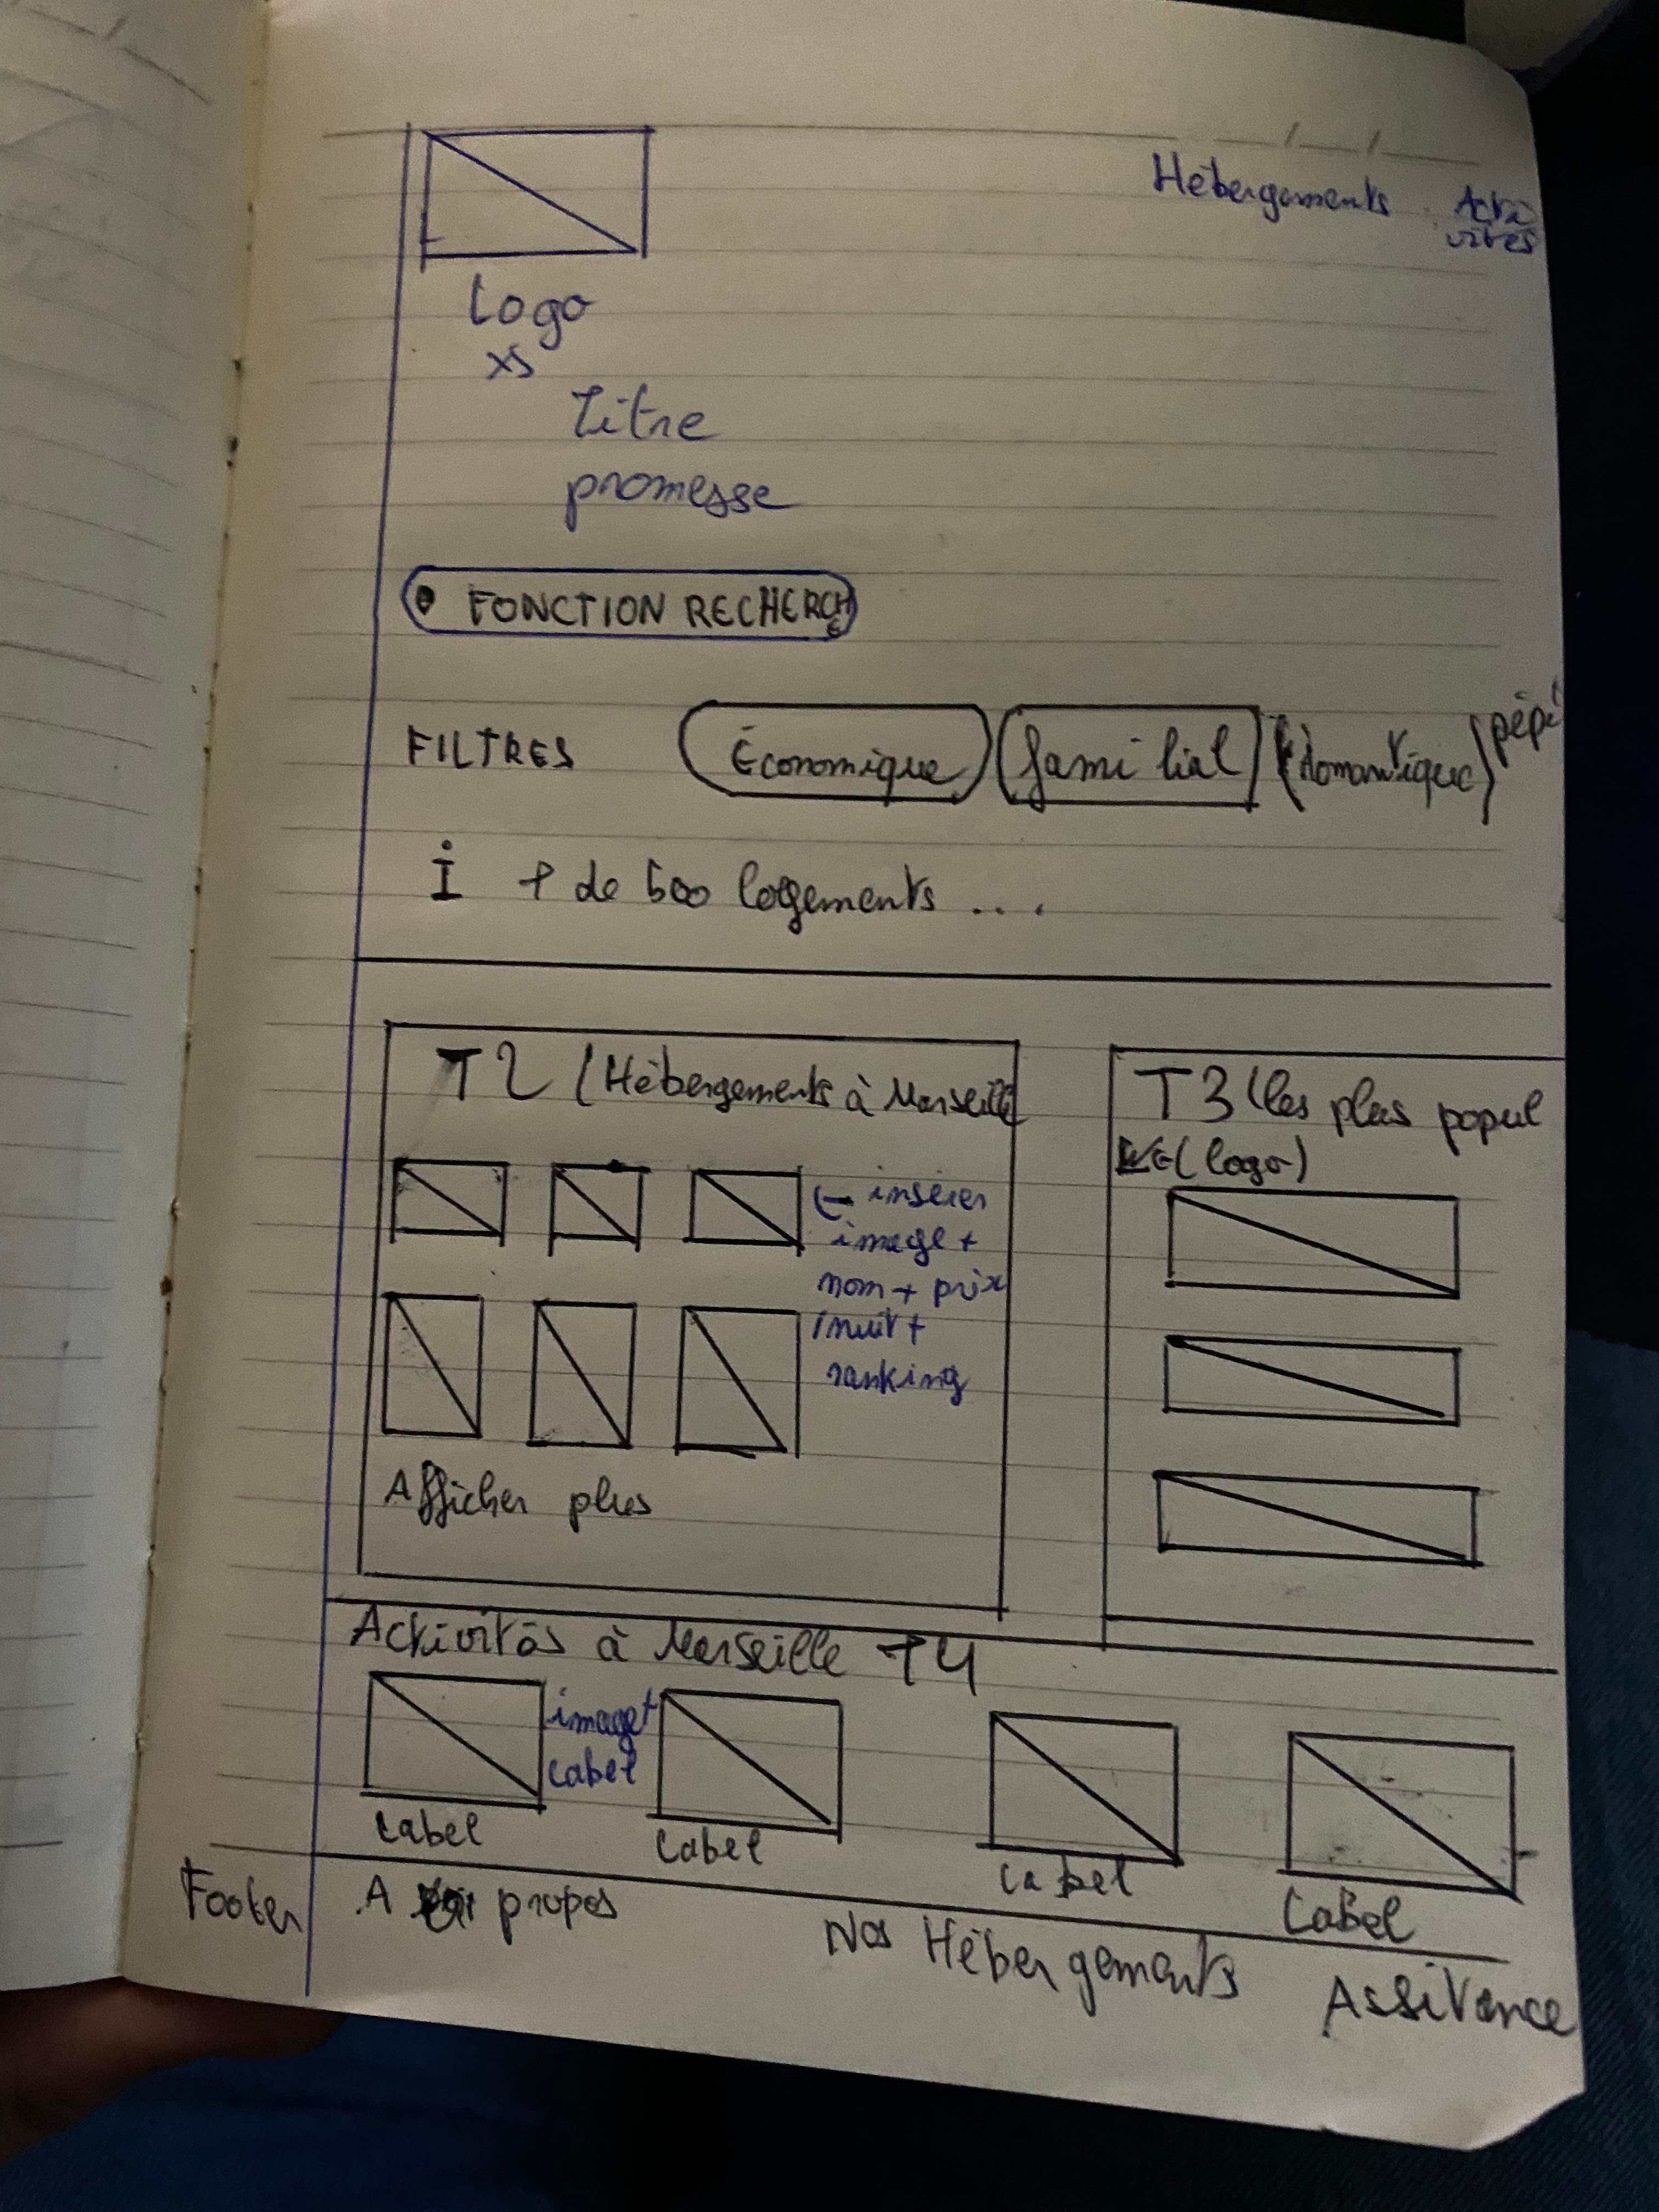 Hébergements Acti
vités
Logo
xs
Titre
promesse
FONCTION RECHERCHE
FILTRES Économique familial Romantique pépi
i + de 500 logements ...
T2 (Hébergements à Marseille
T3 (les plus popul
(logo)
← insérer
image +
nom + prix
/nuit +
ranking
Afficher plus
Activités à Marseille T4
image +
Label
Label Label Label Label
Footer A propos Nos Hébergements Assistance